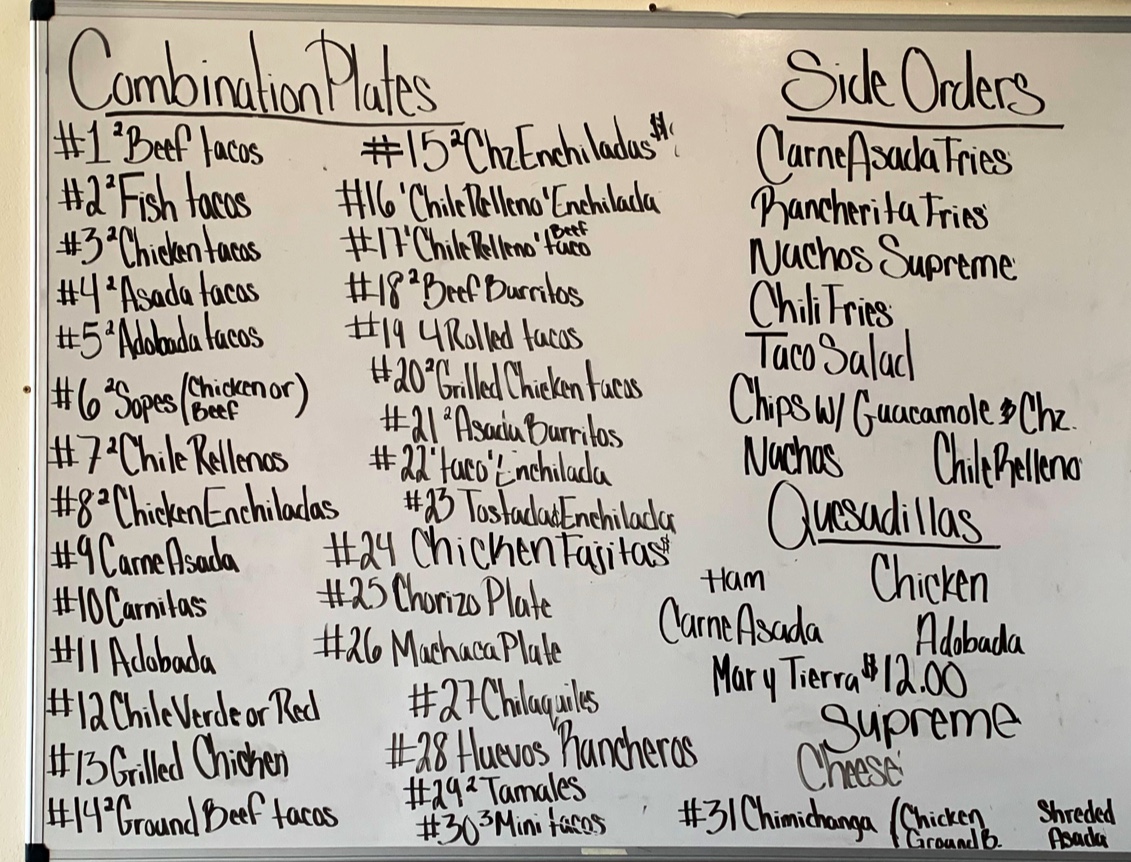 Combination Plates
#1 2 Beef tacos
#2 2 Fish tacos
#3 2 Chicken tacos
#4 2 Asada tacos
#5 2 Adobada tacos
#6 2 Sopes (Chicken or Beef)
#7 2 Chile Rellenos
#8 2 Chicken Enchiladas
#9 Carne Asada
#10 Carnitas
#11 Adobada
#12 Chile Verde or Red
#13 Grilled Chicken
#14 2 Ground Beef tacos
#15 2 Chz Enchiladas
#16 1 Chile Relleno 1 Enchilada
#17 1 Chile Relleno 1 Beef taco
#18 2 Beef Burritos
#19 4 Rolled tacos
#20 2 Grilled Chicken tacos
#21 2 Asada Burritos
#22 1 taco 1 Enchilada
#23 Tostada & Enchilada
#24 Chicken Fajitas
#25 Chorizo Plate
#26 Machaca Plate
#27 Chilaquiles
#28 Huevos Rancheros
#29 2 Tamales
#30 3 Mini tacos
Side Orders
Carne Asada Fries
Rancherita Fries
Nachos Supreme
Chili Fries
Taco Salad
Chips w/ Guacamole & Chz.
Nachos Chile Relleno
Quesadillas
Ham Chicken
Carne Asada Adobada
Mar y Tierra $12.00
Supreme
Cheese
#31 Chimichanga (Chicken Shreded
Ground B. Asada